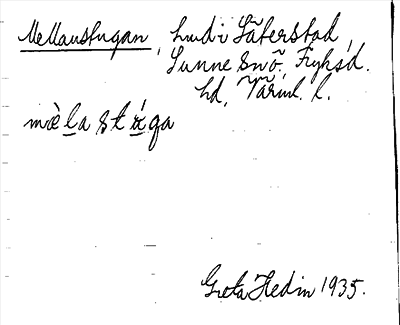 Mellanstugan, hmd i Säterstad,
Sunne snö, Fryksd.
hd, Värml. l.
mèla stʉ́ga
Greta Hedin 1935.